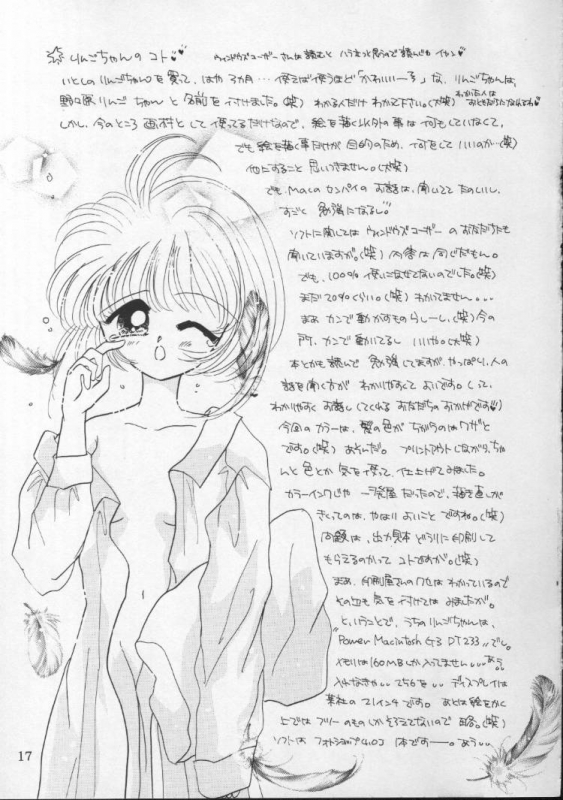 りんごちゃんのコト
ウィンドウズユーザーさんは読むとハラ立つと思うので読んじゃイカン
いとしのりんごちゃんを買って、はや3カ月…使えば使うほど「かわいい子」な、りんごちゃんは、
野々原りんごちゃんと名前を付けました。(笑) わかる人だけわかって下さい。(大笑) わかった人はおともだちになれてね
しかし、今のところ画材として使ってるだけなので、絵を描く以外の事は何もしていなくて、
でも絵を描く事だけが目的のため、何をしていいのか…(笑)
他にすること思いつきません。(大笑)
でもMacなセンパイのお話は、聞いててたのしいし、
すごく勉強になるし
ソフトに関してはウィンドウズユーザーのおなかまにも
聞いていますが。(笑) 内容は同じだもん。
でも、100%使いこなせてないのでした。(笑)
まだ20%くらい。(笑) わかってません…
まあカンで動かすものらしーし、(笑) 今の
所、カンで動いてるしいいや。(大笑)
本とかも読んで勉強してますが、やっぱり、人の
話を聞く方がわかりやすくてよいです。
わかりやすくお話ししてくれるおなかまのおかげです
今回のカラーは、髪の色がちがうのはワザと
です。(笑) あそんだ。プリントアウトしながら、ちゃ
んと色とか気を使って、仕上げてみました。
カラーインクじゃ一発屋だったので、描き直しが
きくってのは、やはりよいことですね。(笑)
問題は、出力見本どうりに印刷して
もらえるのかってコトですが。(笑)
まあ、印刷屋さんのクセはわかっているので
その辺も気を付けてはみましたが。
ということで、うちのりんごちゃんは、
"Power Macintosh G3 DT233"でし。
メモリは160MBしか入ってません…あう。
入れなきゃ…256を…ディスプレイは
某社の21インチです。あとは絵をかく
上ではフリーのものしかそろえてないので略。(笑)
ソフトはフォトショップ4.0J 1本ですー。あう…
17